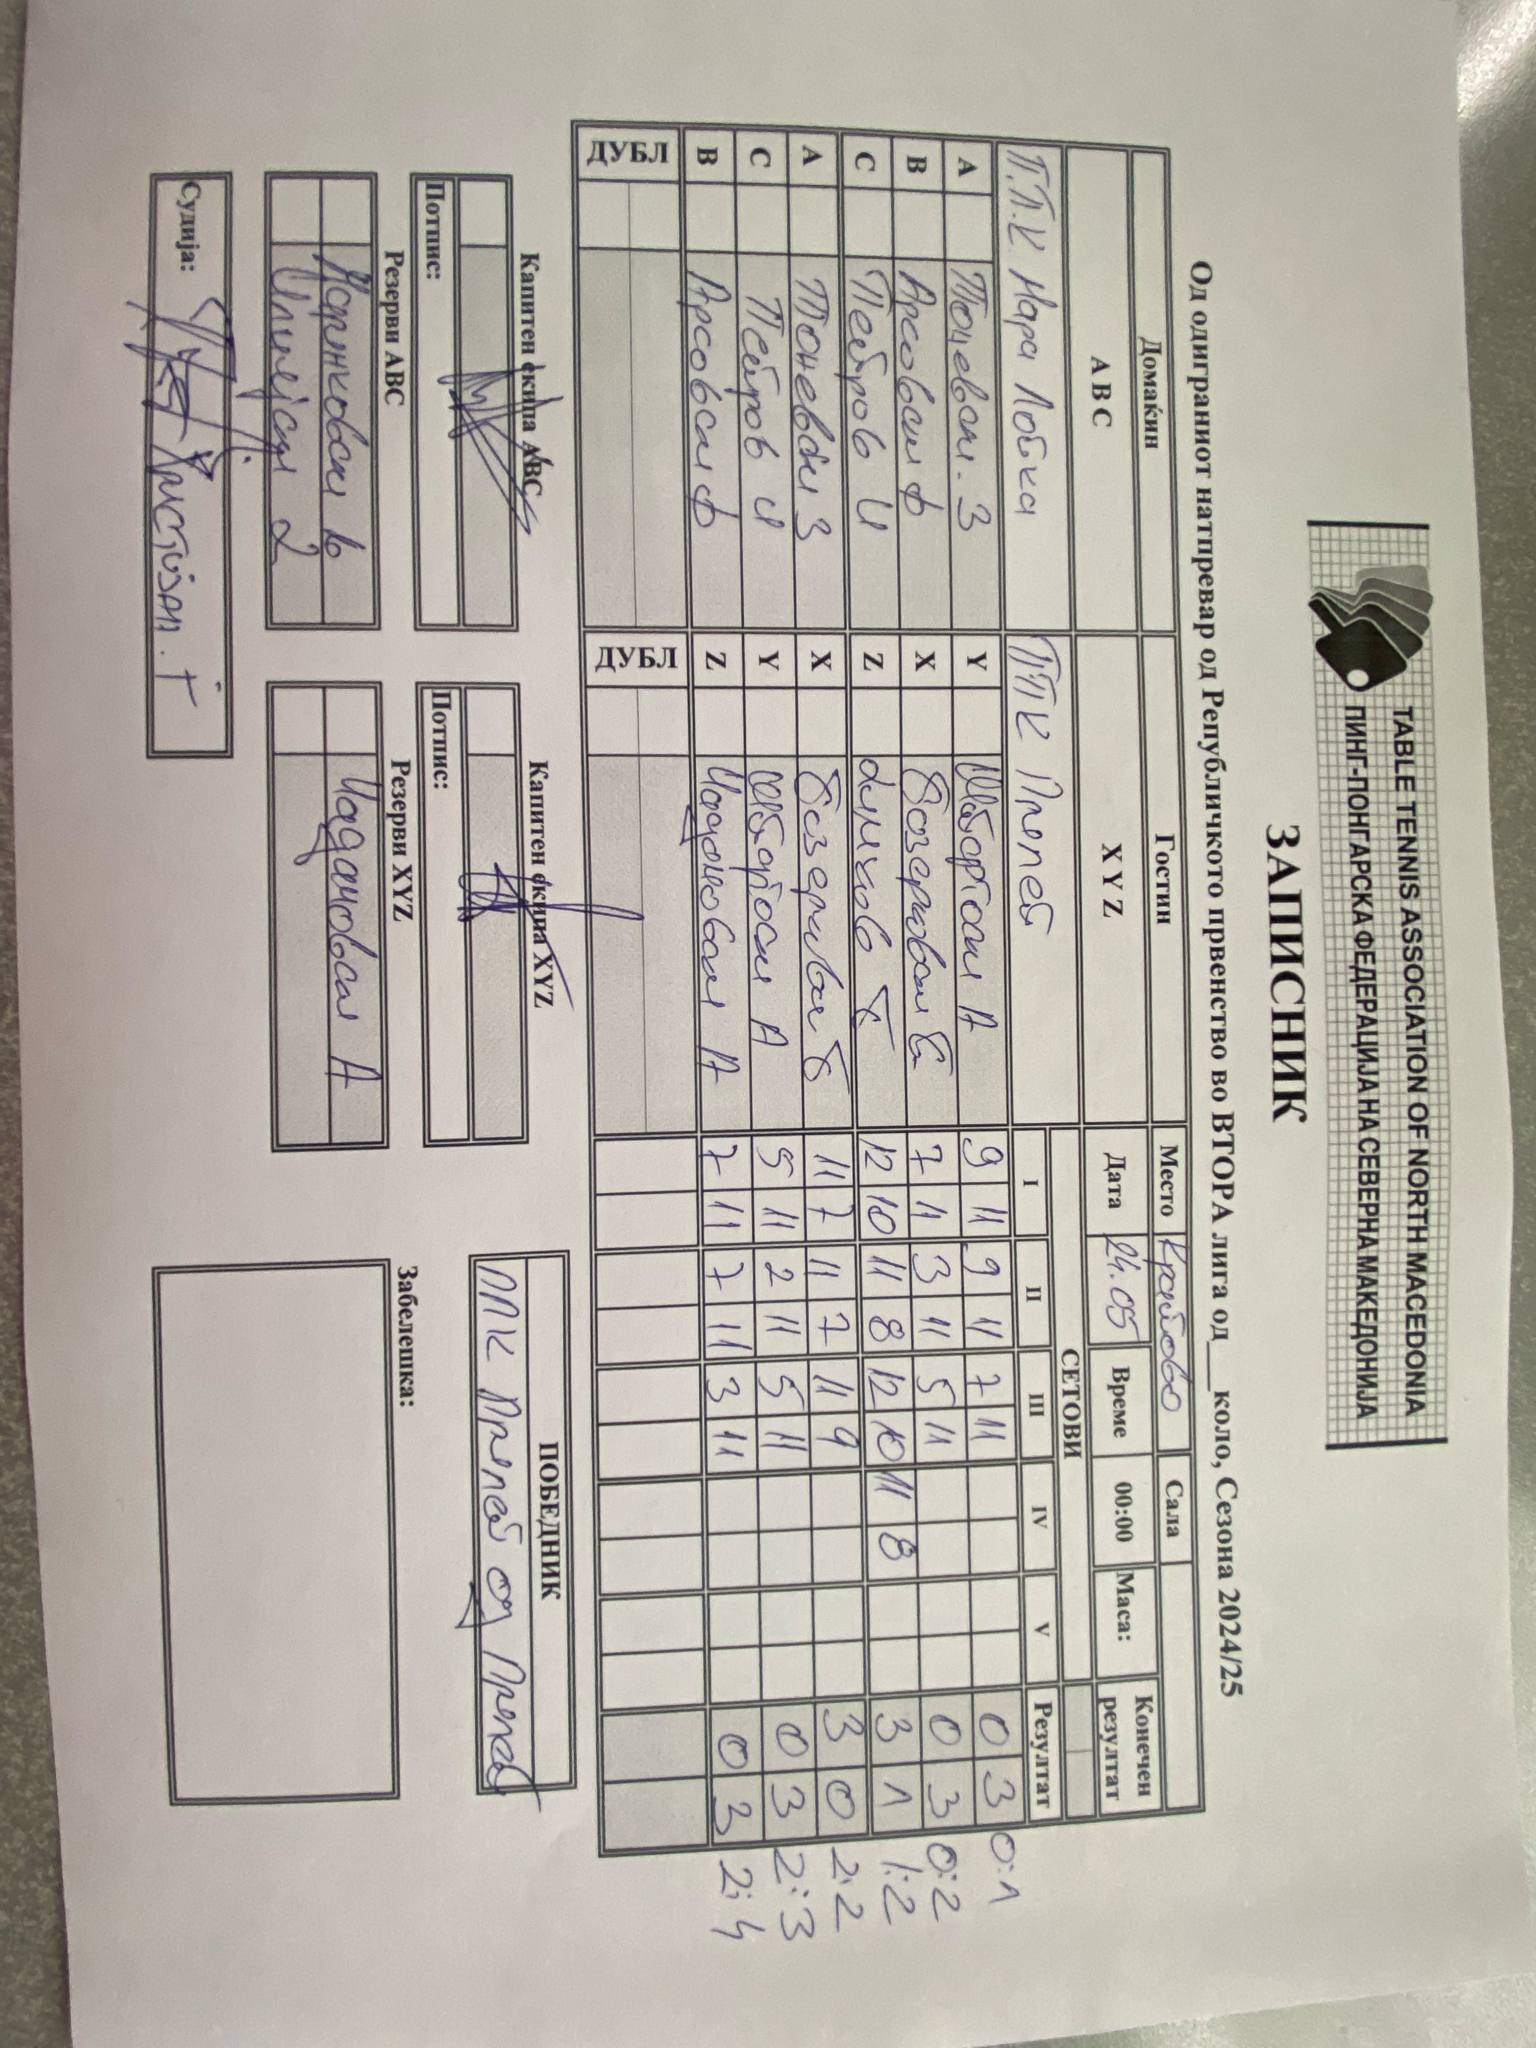 TABLE TENNIS ASSOCIATION OF NORTH MACEDONIA
ПИНГ-ПОНГАРСКА ФЕДЕРАЦИЈА НА СЕВЕРНА МАКЕДОНИЈА
ЗАПИСНИК
Од одиграниот натпревар од Републичкото првенство во ВТОРА лига од___коло, Сезона 2024/25
Домаќин Гостин Место Сала
A B C X Y Z Дата 24.05 Време 00:00 Маса: Конечен резултат
СЕТОВИ
П.П.К Мара ППК Прпел I II III IV V Резултат
A Тоневски З Y А 9 11 9 11 7 11 0 3 0:1
B Арсовски Ф X Б 7 11 3 11 5 11 0 3 0:2
C Петров И Z Б 12 10 11 8 12 10 11 8 3 1 1:2
A Тоневски З X Б 11 7 11 7 11 9 3 0 2:2
C Петров И Y А 5 11 2 11 5 11 0 3 2:3
B Арсовски Ф Z Наумовски А 7 11 7 11 3 11 0 3 2:4
ДУБЛ ДУБЛ
Капитен екипа ABC Капитен екипа XYZ ПОБЕДНИК
Потпис: Потпис: ППК Прпел од
Резерви ABC Резерви XYZ Забелешка:
А
Судија: